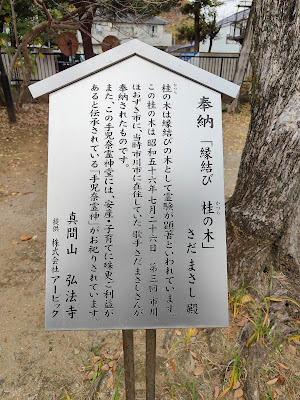 奉納 「縁結び 桂の木」
かつら
さだまさし 殿
桂の木は縁結びの木として霊験が顕著といわれています
この桂の木は 昭和五十六年 七月二十六日 第三回 市川
ほおずき市に、当時市川市に在住していた歌手さだまさしさんが
奉納されたものです。
また、この手児奈霊神堂には、安産・子育てに殊更ご利益が
あると伝承されている「手児奈霊神」がお祀りされています
真間山 弘法寺
提供 株式会社 アービック